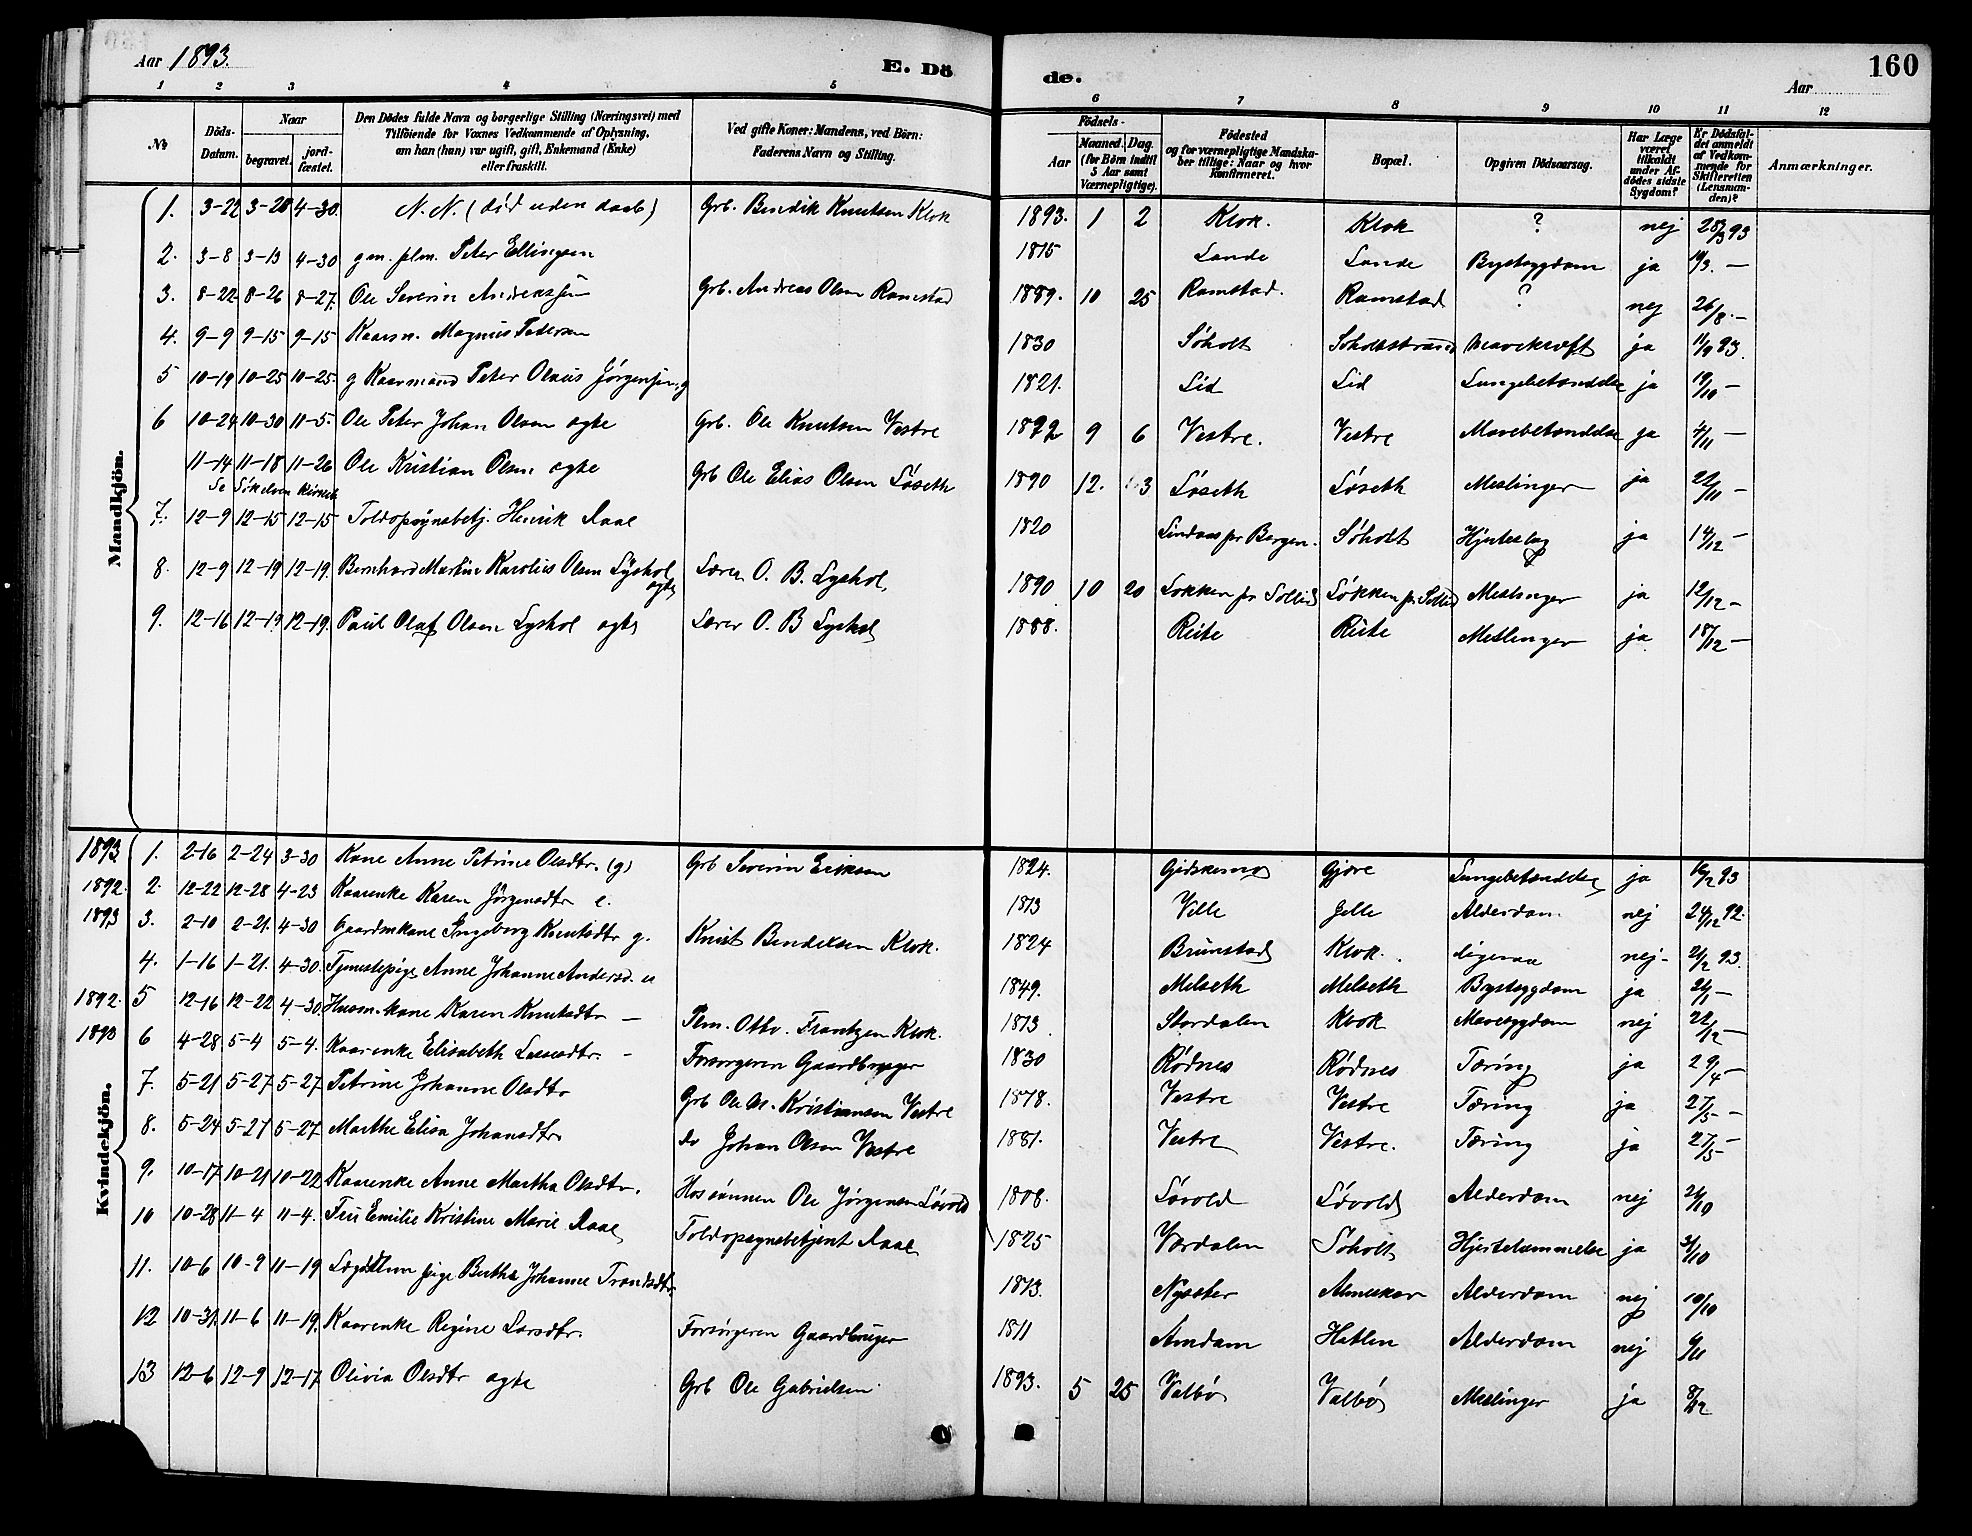 Aar 1893.
E. Dö de.
Aar
160
1 2 3 4 5 6 7 8 9 10 11 12
№
Döds-Datum.
Naar
begravet.
jord-fæstet.
Den Dödes fulde Navn og borgerlige Stilling (Næringsvei) med
Tilföiende for Voxnes Vedkommende af Oplysning,
om han (hun) var ugift, gift, Enkemand (Enke)
eller fraskilt.
Ved gifte Koner: Mandens, ved Börn:
Faderens Navn og Stilling.
Födsels-
Aar
Maaned. Dag.
(for Börn indtil
5 Aar samt
Værnepligtige).
Födested
og for værnepligtige Mandska-
ber tillige: Naar og hvor
konfirmeret.
Bopæl.
Opgiven Dödsaarsag.
Har Læge
været
tilkaldt
under Af-
dödes sidste
Sygdom?
Er Dödsfal-
det anmeldt
af Vedkom-
mende for
Skifteretten
(Lensman-
den)?
Anmærkninger.
Mandkjön.
1. 3-22 3-28 4-30. N. N. (død uden daab) Grb. Bendik Knutsen Klok 1893. 1 2 Klok. Klok ? nej 28/3 93
2. 3-8 3-13 4-30 gm. plm. Peter Ellingsen 1815 Lande Lande Brystsygdom ja 14/3. —
3. 8-22 8-26 8-27. Ole Severin Andreassen Grb. Andreas Olsen Ramstad 1889. 10 25 Ramstad. Ramstad ? nej 26/8. —
4. 9-9 9-15 9-15 Kaarm. Magnus Petersen 1830 Søholt Søholtstrand Mavekræft ja 11/9 93.
5 10-19 10-25 10-25. g Kaarmand Peter Olaus Jørgensen, g 1821. Lid Lid Lungebetændelse ja 19/10 —
6 10-24 10-30 11-5. Ole Peter Johan Olsen ægte Grb. Ole Knutsen Vestre 1892 9 6 Vestre. Vestre Mavebetændelse ja 4/11 —
11-14 11-18 11-26 Ole Kristian Olsen ægte Grb Ole Elias Olsen Løseth 1890 12. 3 Løseth Løseth Meslinger ja 22/11 —
Se Søkelven Kirkeb.
7. 12-9 12-15 12-15 Toldopsynsbetj. Henrik Aall 1820 Lindaas pr Bergen. Søholt Hjerteslag ja 14/12 —
8. 12-9 12-19 12-19. Bernhard Martin Karolius Olsen Lyshol ægte Lærer O. B. Lyshol, 1890 10 20 Løkken pr Sollid Løkken pr Sollid Meslinger ja 12/12 —
9. 12-16 12-19 12-19. Paul Olaf Olsen Lyshol ægte Lærer O. B Lyshol 1888. Reite Reite Meslinger ja 18/12 —
Kvindekjön.
1893 1. 2-16 2-24 3-30 Kone Anne Petrine Olsdtr. (g) Grb Severin Eriksen 1824. Gjøre Lungebetændelse ja 16/2 93
1892. 2. 12-22 12-28 4-23 Kaarenke Karen Jørgensdtr e. 1813 Velle Jelle Alderdom nej 24/12 92.
1893 3. 2-10 2-21. 4-30 Gaardmkone Ingeborg Knutsdtr g. Knut Bendiksen Klok. 1824 Brunstad Klok. ligesaa nej- 21/2 93.
4. 1-16 1-21. 4-30. Tjenestepige Anne Johanne Andersd. u 1849. Melseth Melseth Brystsygdom ja 21/1 —
1892. 5 12-16 12-22 4-30. Husm. kone Karen Knutsdtr — Plm. Otto Frantzen Klok. 1813 Stordalen Klok Mavesygdom nej 22/2 —
1893 6 4-28 5-4 5-4. Kaarenke Elisabeth Lassedtr. — Forsørgeren Gaardbruger 1830 Rødnes Rødnes Tæring ja 29/4 —
7. 5-21 5-27 5-27 Petrine Johanne Olsdtr Grb Ole M. Kristiansen Vestre 1878. Vestre Vestre Tæring ja 27/5 —
8. 5-24 5-27 5-27 Marthe Elisa Johansdtr do Johan Olsen Vestre 1881. Vestre Vestre. Tæring ja 27/5 —
9. 10-17 10-21 10-22 Kaarenke Anne Martha Olsdtr. Hos sønnen Ole Jørgensen Løvold 1808. Løvold Løvold Alderdom nej 21/10
10 10-28 11-4 11-4. Fru Emilie Kristine Marie Aall Toldopsynsbetjent Aall 1825 Værdalen Søholt Hjertelammelse ja 31/10
11. 10-6 10-9 11-19 Lægdslem pige Berthe Johanne Trondsdtr. 1813. Nysæter Almeskar Alderdom nej 10/10
12 10-31. 11-6 11-19. Kaarenke Regine Larsdtr. Forsørgeren Gaardbruger 1811 Amdam Hatlen Alderdom nej 6/11
13 12-6 12-9 12-17. Olivia Olsdtr ægte Grb Ole Gabrielsen 1893. 5 25 Valbø Valbø Meslinger ja 8/12